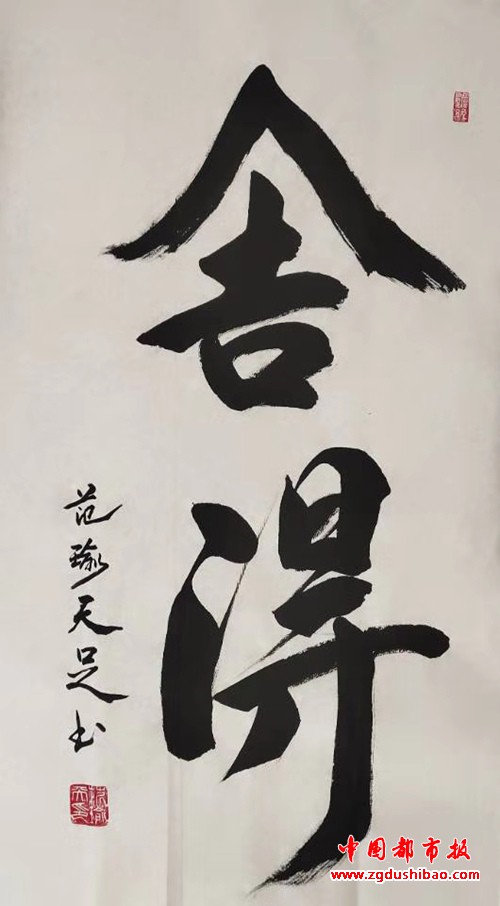 舍得
范瑜天足书
中国都市报
www.zgdushibao.com